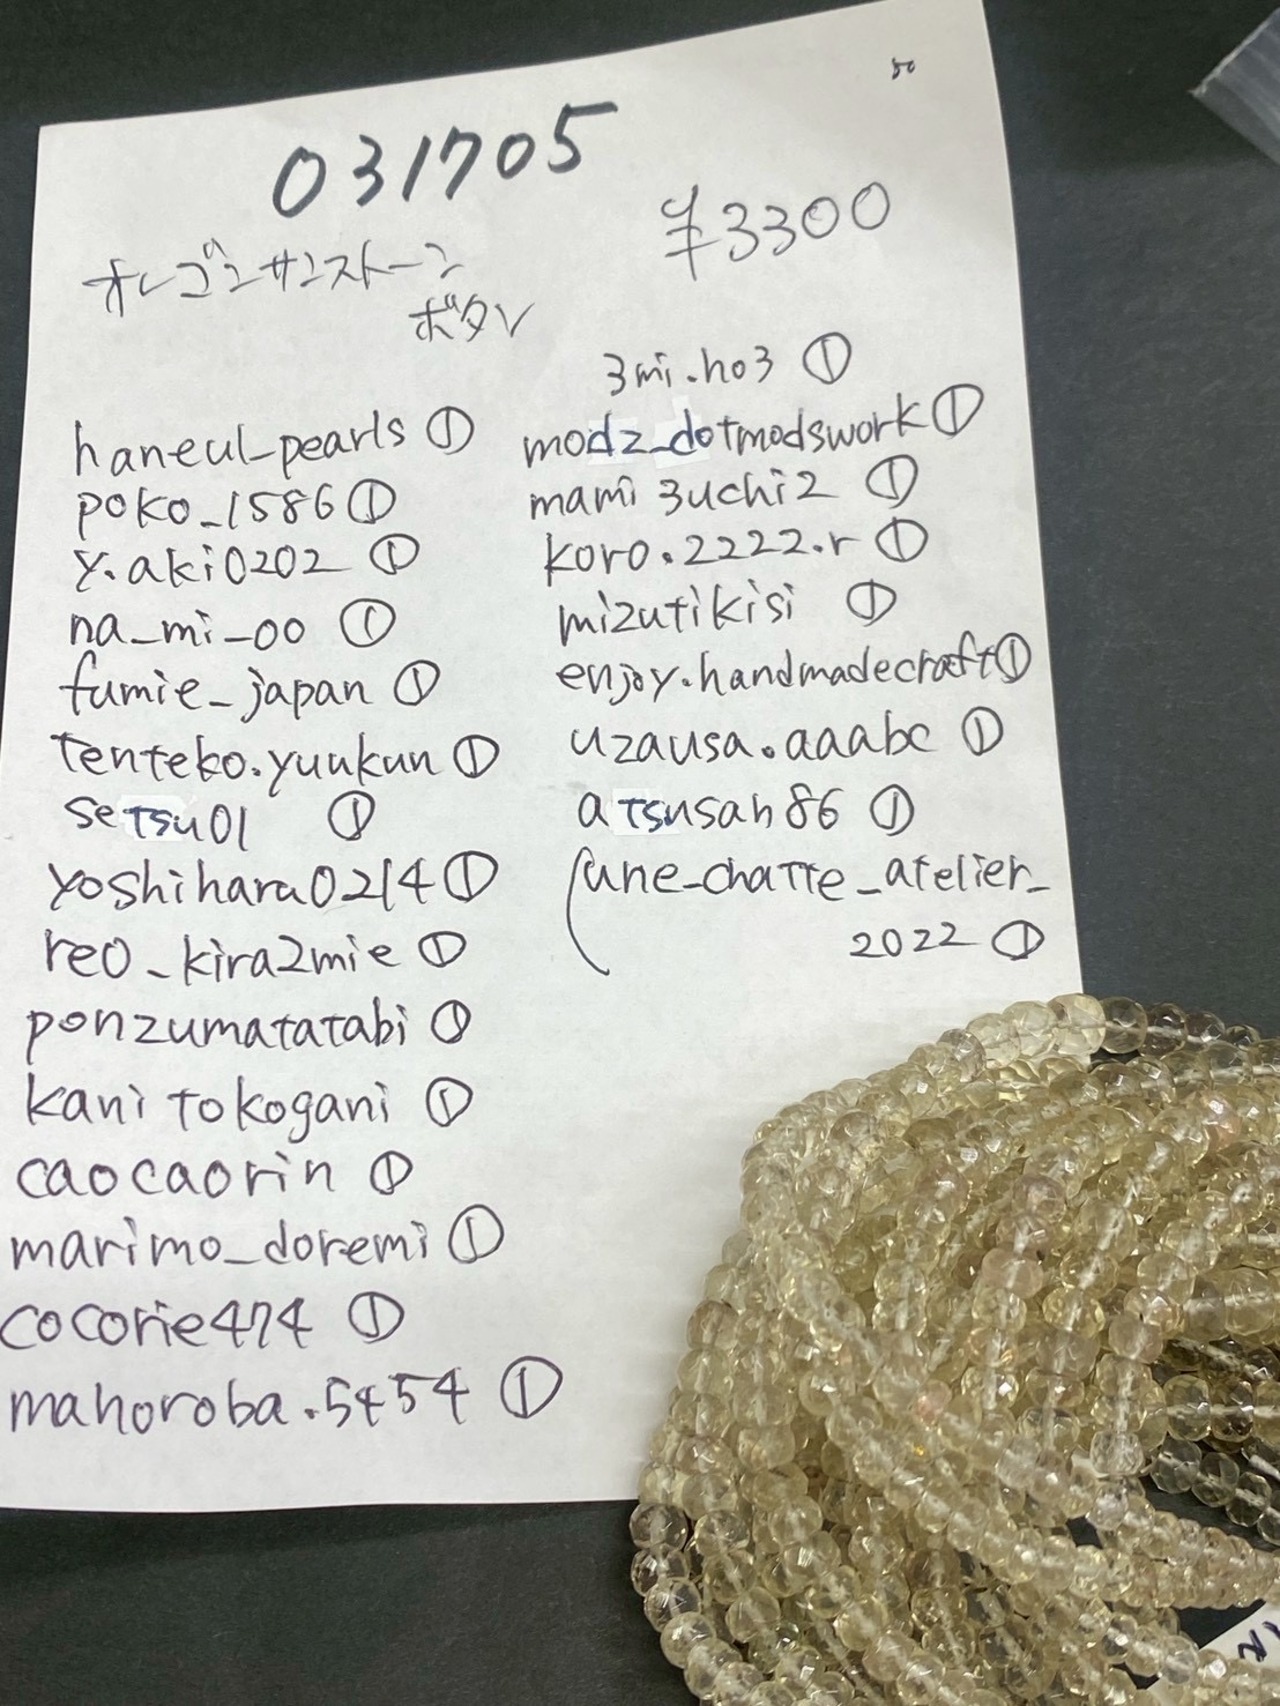 50
031705
¥3300
オレゴンサンストーン
ボタン
haneul_pearls ①
poko_1586 ①
y.aki0202 ①
na_mi_oo ①
fumie_japan ①
tenteko.yuukun ①
setsu01 ①
yoshiharu0214 ①
reo_kira2mie ①
ponzumatatabi ①
kanitokogani ①
caocaorin ①
marimo_doremi ①
cocorie474 ①
mahoroba.5454 ①
3mi.ho3 ①
modz_dotmodswork ①
mami3uchi2 ①
koro.2222.r ①
mizutikisi ①
enjoy.handmadecraft ①
uzausa.aaabc ①
atsusan86 ①
une_chatte_atelier_
2022 ①